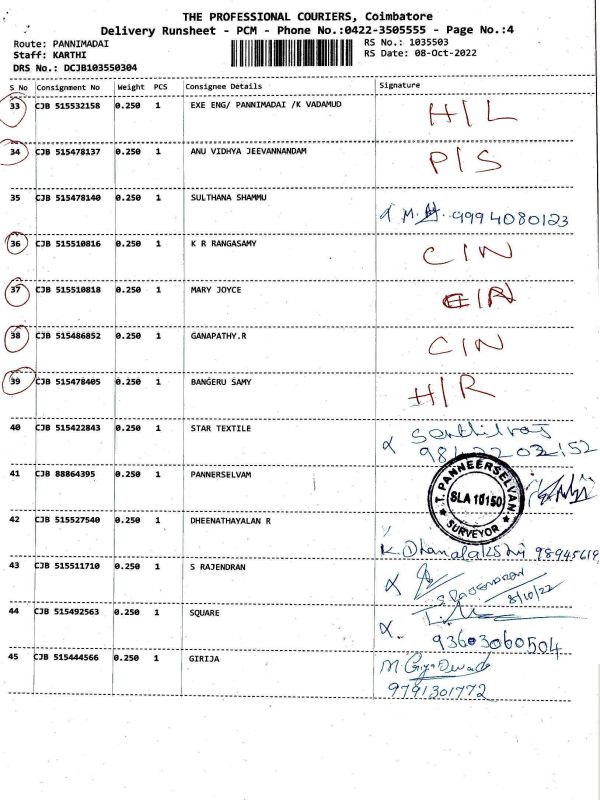 THE PROFESSIONAL COURIERS, Coimbatore
Delivery Runsheet - PCM - Phone No.:0422-3505555 - Page No.:4
Route: PANNIMADAI RS No.: 1035503
Staff: KARTHI RS Date: 08-Oct-2022
DRS No.: DCJB103550304
S No Consignment No Weight PCS Consignee Details Signature
33 CJB 515532158 0.250 1 EXE ENG/ PANNIMADAI /K VADAMUD H/L
34 CJB 515478137 0.250 1 ANU VIDHYA JEEVANNANDAM P/S
35 CJB 515478140 0.250 1 SULTHANA SHAMMU M. 9994080123
36 CJB 515510816 0.250 1 K R RANGASAMY C/N
37 CJB 515510818 0.250 1 MARY JOYCE
38 CJB 515486852 0.250 1 GANAPATHY.R C/N
39 CJB 515478405 0.250 1 BANGERU SAMY H/R
40 CJB 515422843 0.250 1 STAR TEXTILE Senthilraj
41 CJB 88864395 0.250 1 PANNERSELVAM T. PANNEERSELVAN SLA 10150 SURVEYOR
42 CJB 515527540 0.250 1 DHEENATHAYALAN R K. Dhanalakshmi 98945619
43 CJB 515511710 0.250 1 S RAJENDRAN S. RAJENDRAN 8/10/22
44 CJB 515492563 0.250 1 SQUARE 93603060504
45 CJB 515444566 0.250 1 GIRIJA M. 9791301772